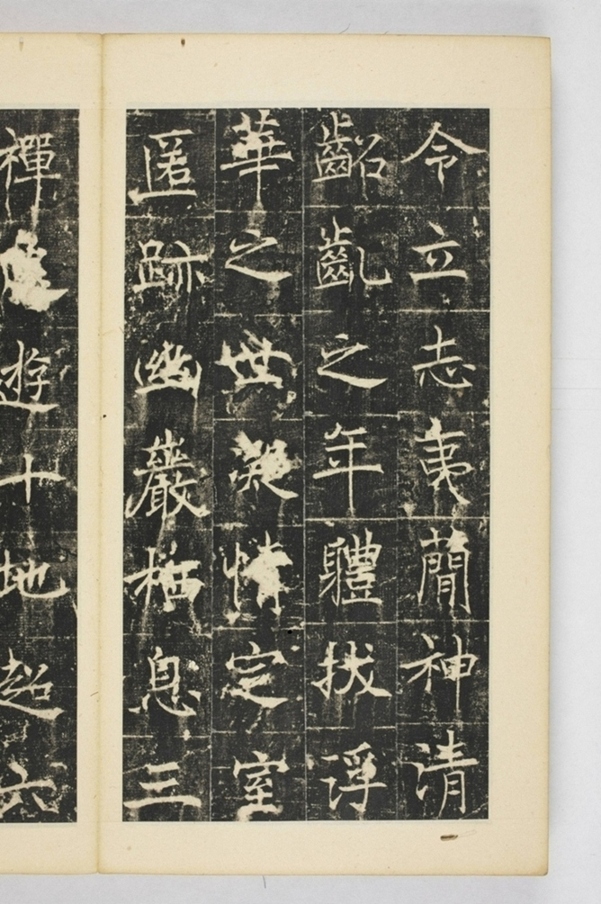 令立志夷簡神清
齠齓之年軆拔浮
華之世凝情定室
匿跡幽巖栖息三
禪遊十地超六